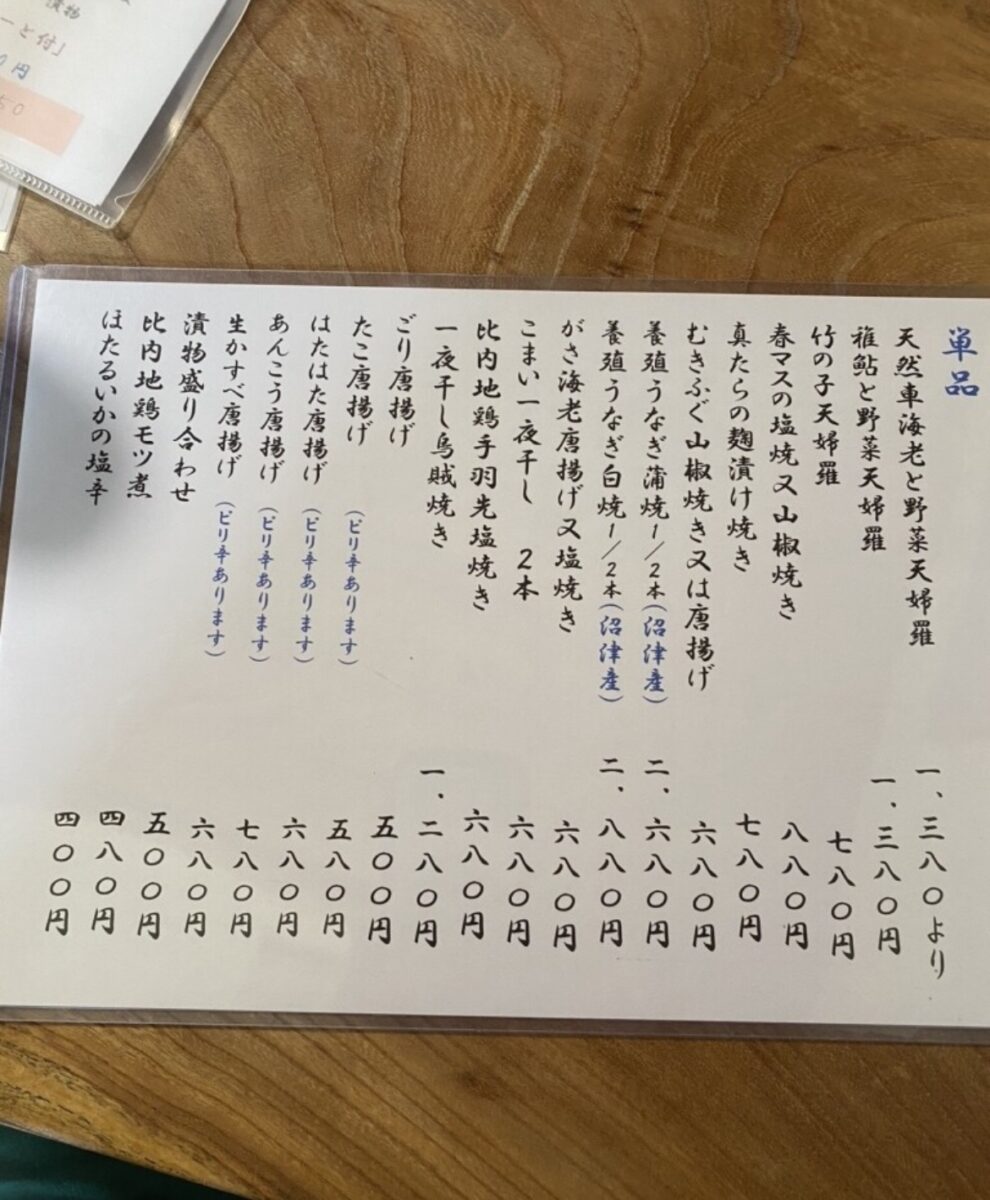 漬物
ーと付」
0円
50
単品
天然車海老と野菜天婦羅 一、三八〇より
稚鮎と野菜天婦羅 一、三八〇円
竹の子天婦羅 七八〇円
春マスの塩焼又山椒焼き 八八〇円
真たらの麹漬け焼き 七八〇円
むきふぐ山椒焼き又は唐揚げ 六八〇円
養殖うなぎ蒲焼1/2本(沼津産) 二、六八〇円
養殖うなぎ白焼1/2本(沼津産) 二、八八〇円
がさ海老唐揚げ又塩焼き 六八〇円
こまい一夜干し 2本 六八〇円
比内地鶏手羽先塩焼き 六八〇円
一夜干し烏賊焼き 一、二八〇円
ごり唐揚げ 五〇〇円
たこ唐揚げ (ピリ辛あります) 五八〇円
はたはた唐揚げ (ピリ辛あります) 六八〇円
あんこう唐揚げ (ピリ辛あります) 七八〇円
生かすべ唐揚げ (ピリ辛あります) 六八〇円
漬物盛り合わせ 五〇〇円
比内地鶏モツ煮 四八〇円
ほたるいかの塩辛 四〇〇円